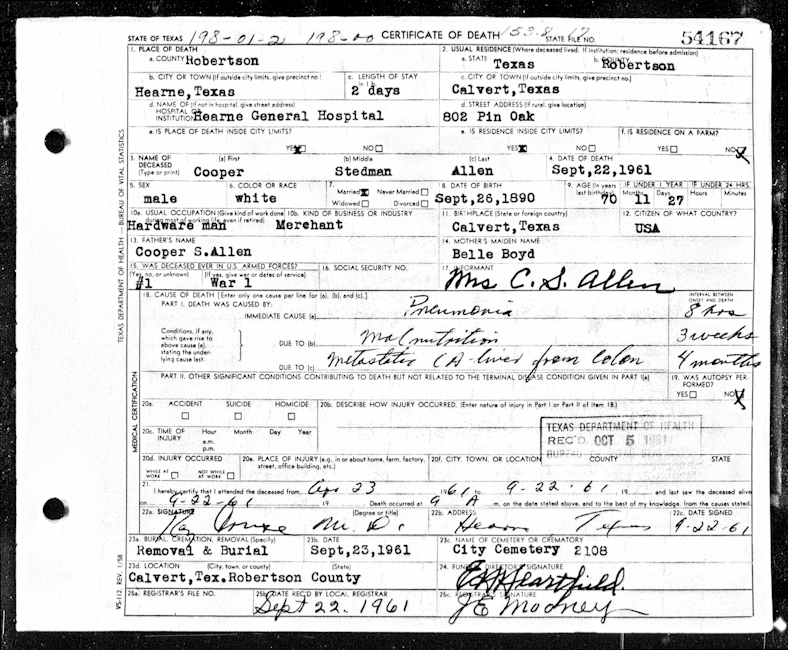 198-01-2 198-00 CERTIFICATE OF DEATH 153.8 17
STATE OF TEXAS STATE FILE NO. 54167
1. PLACE OF DEATH
a. COUNTY Robertson
2. USUAL RESIDENCE (Where deceased lived. If institution: residence before admission)
a. STATE Texas b. COUNTY Robertson
b. CITY OR TOWN (If outside city limits, give precinct no.)
Hearne, Texas
c. LENGTH OF STAY
in 1 b.
2 days
c. CITY OR TOWN (If outside city limits, give precinct no.)
Calvert, Texas
d. NAME OF (If not in hospital, give street address)
HOSPITAL OR
INSTITUTION Hearne General Hospital
d. STREET ADDRESS (If rural, give location)
802 Pin Oak
e. IS PLACE OF DEATH INSIDE CITY LIMITS?
YES X NO
e. IS RESIDENCE INSIDE CITY LIMITS?
YES X NO
f. IS RESIDENCE ON A FARM?
YES NO X
3. NAME OF
DECEASED
(Type or print)
(a) First Cooper
(b) Middle Stedman
(c) Last Allen
4. DATE OF DEATH
Sept,22,1961
5. SEX
male
6. COLOR OR RACE
white
7.
Married X Never Married
Widowed Divorced
8. DATE OF BIRTH
Sept,26,1890
9. AGE (In years
last birthday)
70
IF UNDER 1 YEAR
Months Days
11 27
IF UNDER 24 HRS.
Hours Minutes
10a. USUAL OCCUPATION (Give kind of work done
during most of working life, even if retired)
Hardware man
10b. KIND OF BUSINESS OR INDUSTRY
Merchant
11. BIRTHPLACE (State or foreign country)
Calvert, Texas
12. CITIZEN OF WHAT COUNTRY?
USA
13. FATHER'S NAME
Cooper S.Allen
14. MOTHER'S MAIDEN NAME
Belle Boyd
15. WAS DECEASED EVER IN U.S. ARMED FORCES?
(Yes, no, or unknown) (If yes, give war or dates of service)
#1 War 1
16. SOCIAL SECURITY NO.
17. INFORMANT
Mrs C. S. Allen
18. CAUSE OF DEATH [Enter only one cause per line for (a), (b), and (c).]
PART I. DEATH WAS CAUSED BY:
INTERVAL BETWEEN
ONSET AND DEATH
IMMEDIATE CAUSE (a) Pneumonia 8 hrs
Conditions, if any,
which gave rise to
above cause (a),
stating the under-
lying cause last.
DUE TO (b) Malnutrition 3 weeks
DUE TO (c) Metastatic CA-liver from Colon 4 months
PART II. OTHER SIGNIFICANT CONDITIONS CONTRIBUTING TO DEATH BUT NOT RELATED TO THE TERMINAL DISEASE CONDITION GIVEN IN PART I(a)
19. WAS AUTOPSY PER-
FORMED?
YES NO X
20a. ACCIDENT SUICIDE HOMICIDE
20b. DESCRIBE HOW INJURY OCCURRED. (Enter nature of injury in Part I or Part II of item 18.)
20c. TIME OF
INJURY
Hour Month Day Year
a.m.
p.m.
TEXAS DEPARTMENT OF HEALTH
REC'D OCT 5 1961
BUREAU
20d. INJURY OCCURRED
WHILE AT
WORK
NOT WHILE
AT WORK
20e. PLACE OF INJURY (e.g., in or about home, farm, factory,
street, office building, etc.)
20f. CITY, TOWN, OR LOCATION COUNTY STATE
21. I hereby certify that I attended the deceased from Apr 23 1961 to 9-22-61 19 and last saw the deceased alive
on 9-22-61 19 Death occurred at 9 A m. on the date stated above, and to the best of my knowledge, from the causes stated.
22a. SIGNATURE (Degree or title)
M. D.
22b. ADDRESS
Hearne Texas
22c. DATE SIGNED
9-22-61
23a. BURIAL, CREMATION, REMOVAL (Specify)
Removal & Burial
23b. DATE
Sept,23,1961
23c. NAME OF CEMETERY OR CREMATORY
City Cemetery 2108
23d. LOCATION (City, town, or county) (State)
Calvert,Tex.Robertson County
24. FUNERAL DIRECTOR'S SIGNATURE
Heartfield.
25a. REGISTRAR'S FILE NO.
25b. DATE REC'D BY LOCAL REGISTRAR
Sept 22. 1961
25c. REGISTRAR'S SIGNATURE
J E Mooney
TEXAS DEPARTMENT OF HEALTH — BUREAU OF VITAL STATISTICS
MEDICAL CERTIFICATION
VS-112, REV. 1/58